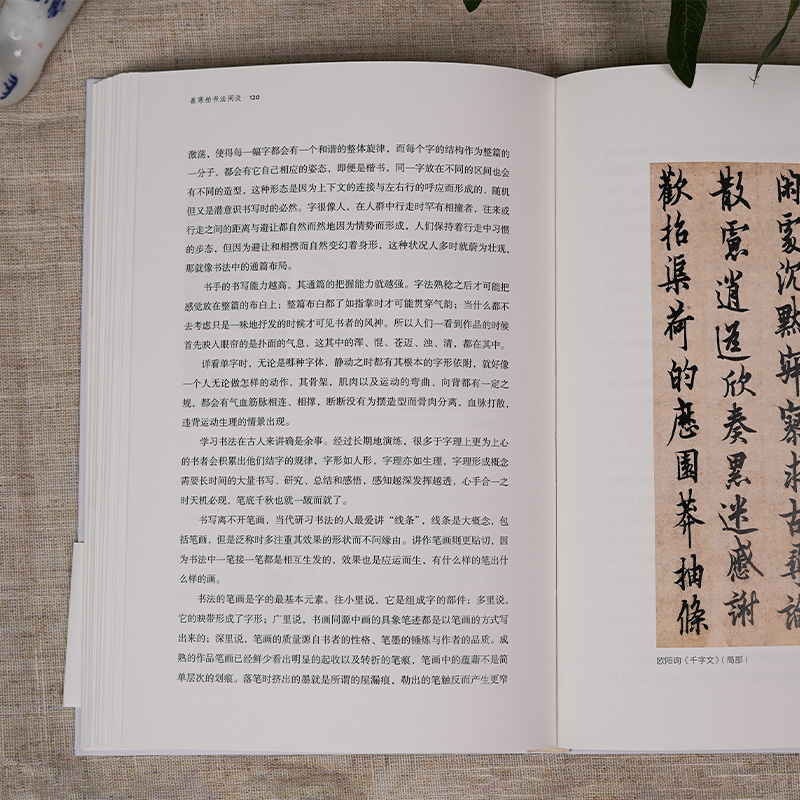 崔寒柏书法闲谈 120
激荡，使得每一幅字都会有一个和谐的整体旋律，而每个字的结构作为整篇的
一分子，都会有它自己相应的姿态，即便是楷书，同一字放在不同的区间也会
有不同的造型，这种形态是因为上下文的连接与左右行的呼应而形成的，随机
但又是潜意识书写时的必然。字很像人，在人群中行走时罕有相撞者，往来或
行走之间的距离与避让都自然而然地因为情势而形成，人们保持着行走中习惯
的步态，但因为避让和相携而自然变幻着身形，这种状况人多时就蔚为壮观，
那就像书法中的通篇布局。
书手的书写能力越高，其通篇的把握能力就越强。字法熟稔之后才可能把
感觉放在整篇的布白上；整篇布白都了如指掌时才可能贯穿气韵；当什么都不
去考虑只是一味地抒发的时候才可见书者的风神。所以人们一看到作品的时候
首先映人眼帘的是扑面的气息，这其中的浑、混、苍迈、浊、清，都在其中。
详看单字时，无论是哪种字体，静动之时都有其根本的字形依附，就好像
一个人无论做怎样的动作，其骨架，肌肉以及运动的弯曲、向背都有一定之
规，都会有气血筋脉相连、相撑，断断没有为摆造型而骨肉分离，血脉打散，
违背运动生理的情景出现。
学习书法在古人来讲确是余事。经过长期地演练，很多于字理上更为上心
的书者会积累出他们结字的规律，字形如人形，字理亦如生理，字理形成概念
需要长时间的大量书写、研究、总结和感悟，感知越深发挥越透，心手合一之
时天机必现，笔底千秋也就一蹴而就了。
书写离不开笔画，当代研习书法的人最爱讲“线条”，线条是大概念，包
括笔画，但是泛称时多注重其效果的形状而不问缘由。讲作笔画则更贴切，因
为书法中一笔接一笔都是相互生发的，效果也是应运而生，有什么样的笔出什
么样的画。
书法的笔画是字的最基本元素。往小里说，它是组成字的部件；多里说，
它的映带形成了字形；广里说，书画同源中画的具象笔迹都是以笔画的方式写
出来的；深里说，笔画的质量源自书者的性格、笔墨的锤炼与作者的品质。成
熟的作品笔画已经鲜少看出明显的起收以及转折的笔痕，笔画中的蕴藉不是简
单层次的划痕。落笔时挤出的墨就是所谓的屋漏痕，勒出的笔触反而产生更窄
闲处沉默寂寥求古寻论
散虑逍遥欣奏累遣戚谢
欢招渠荷的历园莽抽条
欧阳询《千字文》（局部）